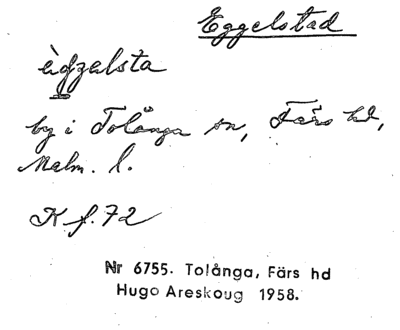 Eggelstad
èggalsta
by i Tolånga sn, Färs hd,
Malm. l.
K f. 72
Nr 6755. Tolånga, Färs hd
Hugo Areskoug 1958.